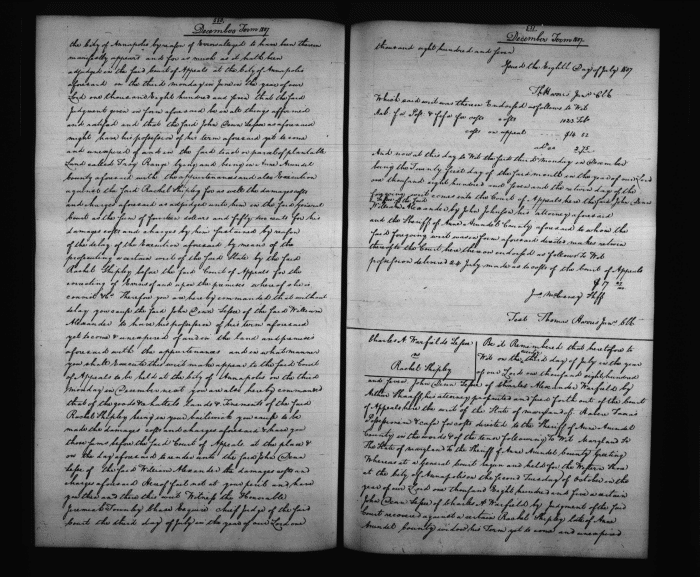 December Term 1807
the City of Annapolis by reason of
manifestly appeared and for as much as it hath been
adjudged in the said Court of Appeals at the City of Annapolis
aforesaid on the third Monday in June in the year of our
Lord one thousand Eight hundred and seven that the said
Judgment given in form aforesaid be in all things affirmed
and that the said John Denn Lessee as aforesaid
might have his possession of his term aforesaid yet to come
and unexpired of and in the said tract or parcel of
Land called Range lying and being in Anne Arundel
County aforesaid with the appurtenances and also Execution
against the said Rachel Shipley for as well the damages costs
and charges aforesaid as adjudged unto him in the said General
Court as the sum of fourteen dollars and fifty two cents for his
damages costs and charges by him sustained by reason
of the delay of the Execution aforesaid by means of the
prosecuting a certain writ of the said State by the said
Rachel Shipley before the said Court of Appeals for the
correcting of Errors of and upon the premises whereof she is
convict &c Therefore you are hereby commanded that without
delay you cause the said John Denn Lessee of the said William
Alexander to have his possession of his term aforesaid
yet to come & unexpired of and in the land and premises
aforesaid with the appurtenances and in what manner
you shall Execute this writ make appear to the said Court
of Appeals to be held at the City of Annapolis on the third
Monday in December next you are also hereby commanded
that of the goods & chattels Lands & Tenements of the said
Rachel Shipley being in your bailiwick you cause to be
made the damages costs and charges aforesaid & have you
those sums before the said Court of Appeals at the place &
on the day aforesaid to render unto the said John Denn
Lessee of the said William Alexander the damages costs and
charges aforesaid Hereof fail not at your peril and have
you then and there this writ Witness the Honorable
Jeremiah Townley Chase Esquire Chief Judge of the said
Court the third day of July in the year of our Lord one
December Term 1807
thousand eight hundred and seven
Issued the Eighth Day of July 1807
Th Harris Junr Clk
Which said writ was thereon Endorsed as follows to Wit
costs
costs on appeal
3.75
And now at this day to Wit the said third Monday in December
being the Twenty first day of the said month in the year of our Lord
one thousand eight hundred and seven and the return day of the
foregoing writ comes into the Court of Appeals here the said John Denn
Lessee of the said
William Alexander by John Johnson his attorney aforesaid
and the Sheriff of Anne Arundel County aforesaid to whom the
said foregoing writ was in form aforesaid directed makes return
thereof to the Court here thereon indorsed as follows to Wit
possession delivered 24 July made as to costs of the Court of Appeals
Shff
Test Thomas Harris Junr Clk
Charles A Warfields Lessee
vs
Rachel Shipley
Be it Remembered that heretofore to
Wit on the third day of July in the year
of our Lord one thousand eight hundred
and seven John Denn Lessee of Charles Alexander Warfield by
Arthur Shaaff his attorney prosecuted and sued forth out of the Court
of Appeals here the writ of the State of Maryland of Habere Facias
Possessionem & casa for costs directed to the Sheriff of Anne Arundel
County in the words & of the tenor following to Wit Maryland to
The State of Maryland to the Sheriff of Anne Arundel County Greeting
Whereas at a general Court begun and held for the Western Shore
at the City of Annapolis on the second Tuesday of October in the
year of our Lord one thousand Eight hundred and five a certain
John Denn Lessee of Charles A Warfield by Judgment of the said
Court recovered against a certain Rachel Shipley late of Anne
Arundel County widow his Term yet to come and unexpired